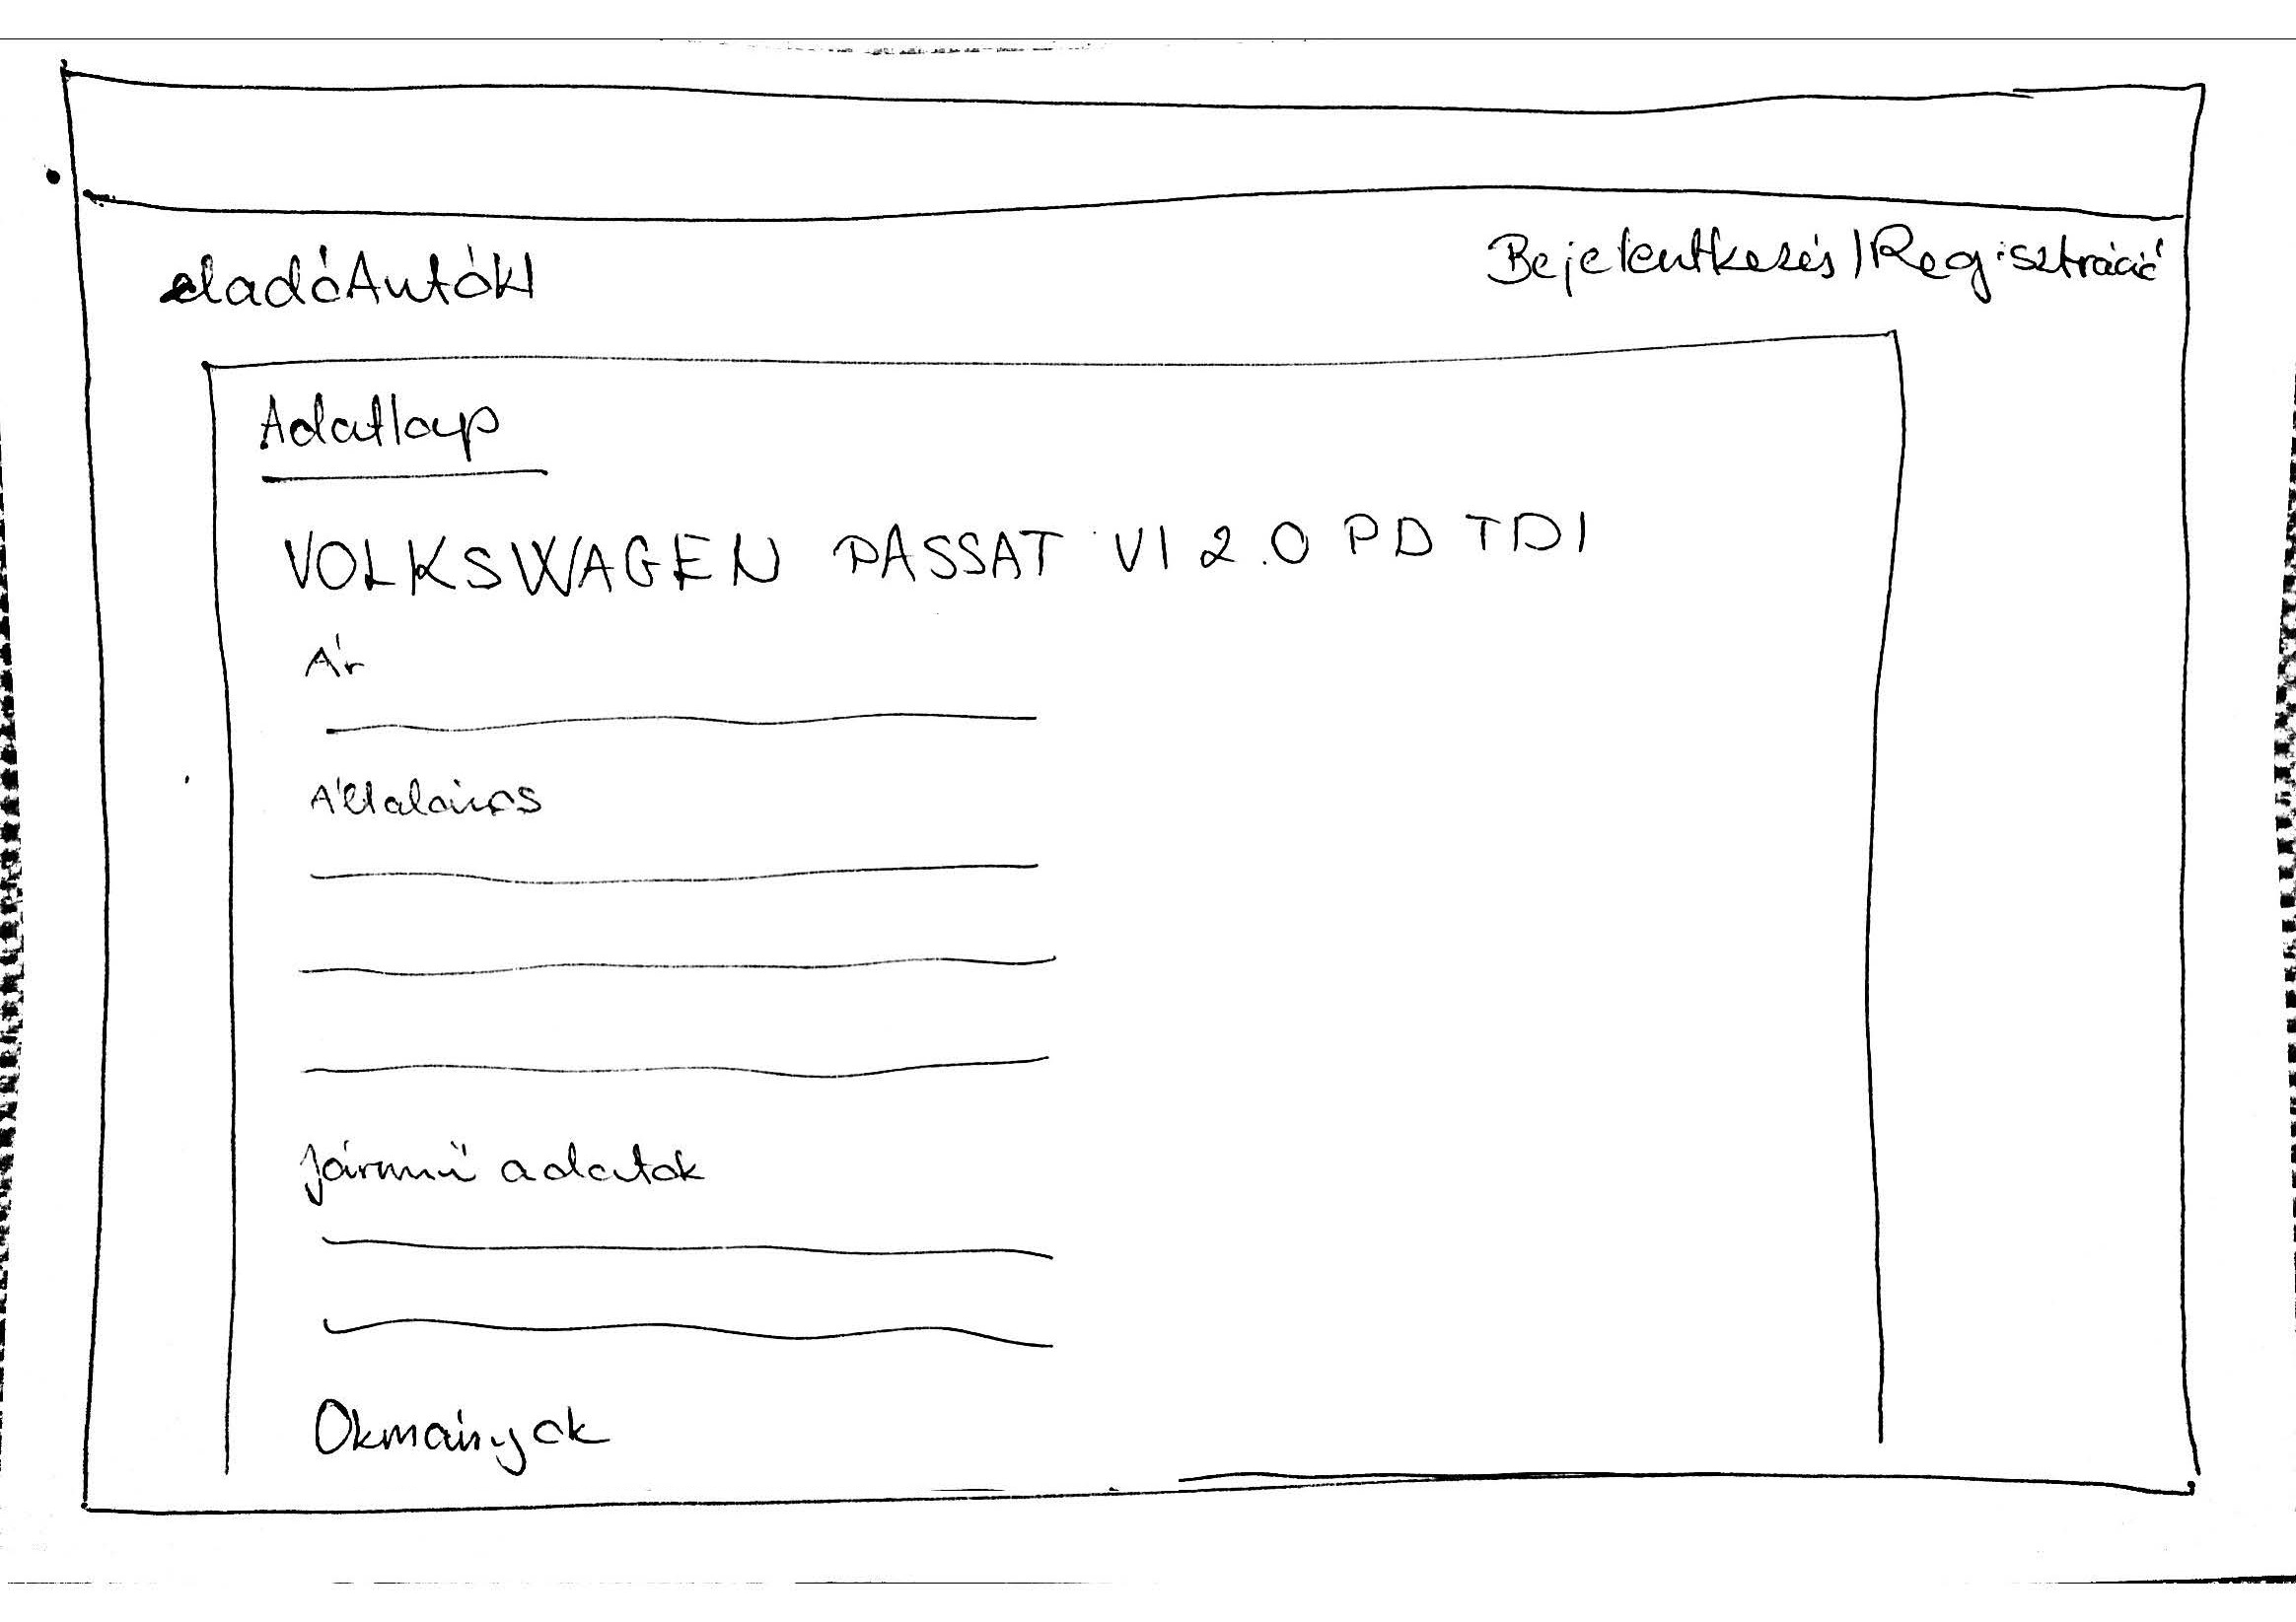 eladóAutók!
Bejelentkezés/Regisztráció
Adatlap
VOLKSWAGEN PASSAT VI 2.0 PD TDI
Ár
Általános
Jármű adatok
Okmányok